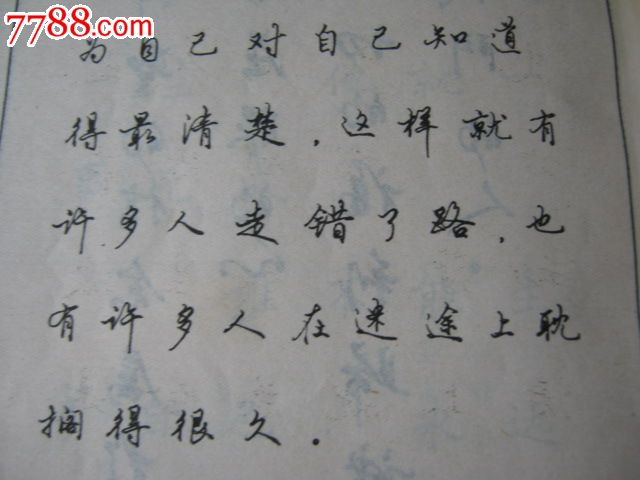 7788.com
为自己对自己知道
得最清楚，这样就有
许多人走错了路，也
有许多人在迷途上耽
搁得很久．